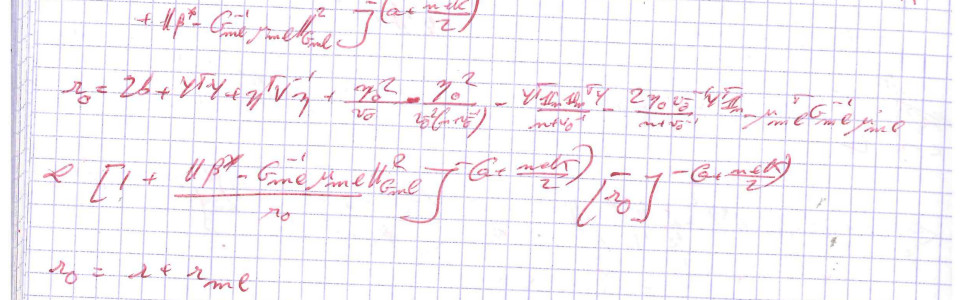 + ||β* - G_{me}^{-1} μ_{me}||²_{G_{me}} ]^{-(a + \frac{n+dK}{2})}
r_0 = 2b + Y^T Y + η^T V^{-1} η + \frac{η_0^2}{v_0} - \frac{η_0^2}{v_0^2(n+v_0^{-1})} - \frac{Y^T 1_n 1_n^T Y}{n+v_0^{-1}} - \frac{2η_0 v_0^{-1} Y^T 1_n}{n+v_0^{-1}} - μ_{me}^T G_{me}^{-1} μ_{me}
α [1 + \frac{||β* - G_{me}^{-1} μ_{me}||²_{G_{me}}}{r_0}]^{-(a + \frac{n+dK}{2})} [r_0]^{-(a + \frac{n+dK}{2})}
r_0 = r + r_{me}